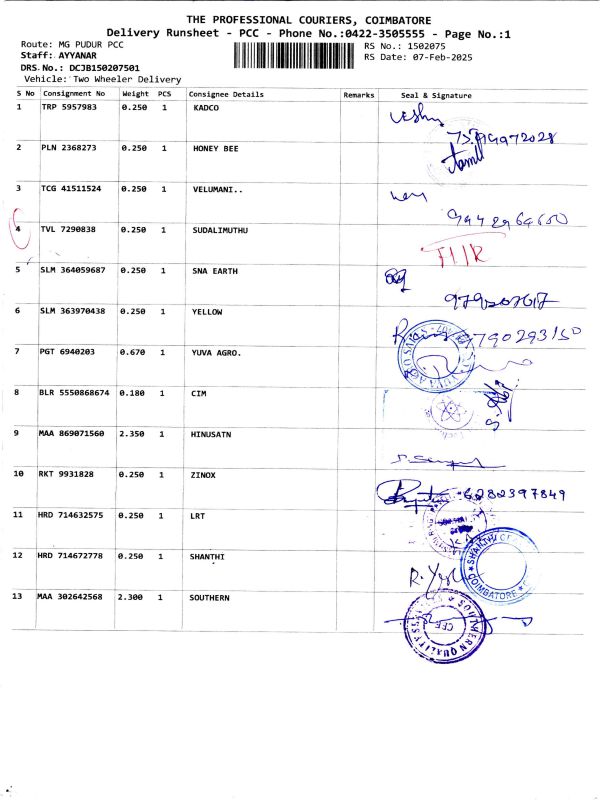 THE PROFESSIONAL COURIERS, COIMBATORE
Delivery Runsheet - PCC - Phone No.:0422-3505555 - Page No.:1
Route: MG PUDUR PCC
RS No.: 1502075
Staff: AYYANAR
RS Date: 07-Feb-2025
DRS.No.: DCJB150207501
Vehicle: Two Wheeler Delivery
S No Consignment No Weight PCS Consignee Details Remarks Seal & Signature
1 TRP 5957983 0.250 1 KADCO
2 PLN 2368273 0.250 1 HONEY BEE
Tamil
3 TCG 41511524 0.250 1 VELUMANI..
4 TVL 7290838 0.250 1 SUDALIMUTHU
5 SLM 364059687 0.250 1 SNA EARTH
6 SLM 363970438 0.250 1 YELLOW
7 PGT 6940203 0.670 1 YUVA AGRO.
8 BLR 5550868674 0.180 1 CIM
9 MAA 869071560 2.350 1 HINUSATN
10 RKT 9931828 0.250 1 ZINOX
6282397849
11 HRD 714632575 0.250 1 LRT
12 HRD 714672778 0.250 1 SHANTHI
COIMBATORE
13 MAA 302642568 2.300 1 SOUTHERN
SOUTHERN QUALITY
CFE